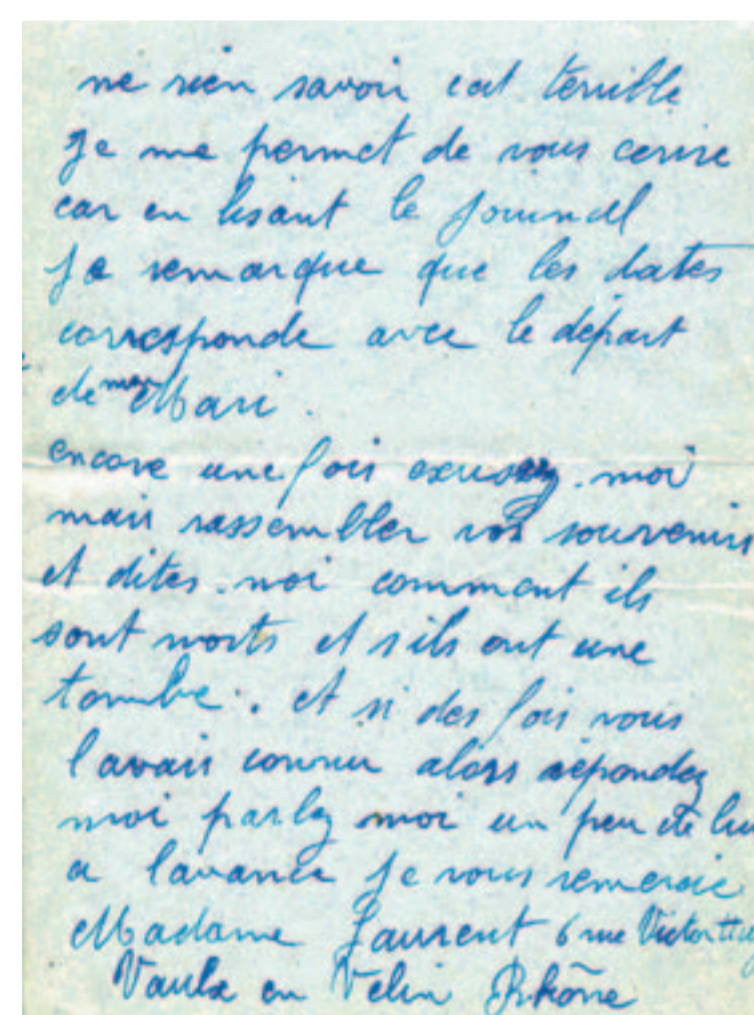 ne rien savoir est terrible
Je me permet de vous ecrire
car en lisant le journal
Je remarque que les dates
corresponde avec le départ
de mon Mari.
encore une fois excusez-moi
mais rassembler vos souvenirs
et dites-moi comment ils
sont morts et s'ils ont une
tombe. et si des fois vous
l'avais connu alors répondez
moi parlez moi un peu de lui
a lavance Je vous remercie
Madame Laurent 6 rue Victor Hugo
Vaulx en Velin Rhône